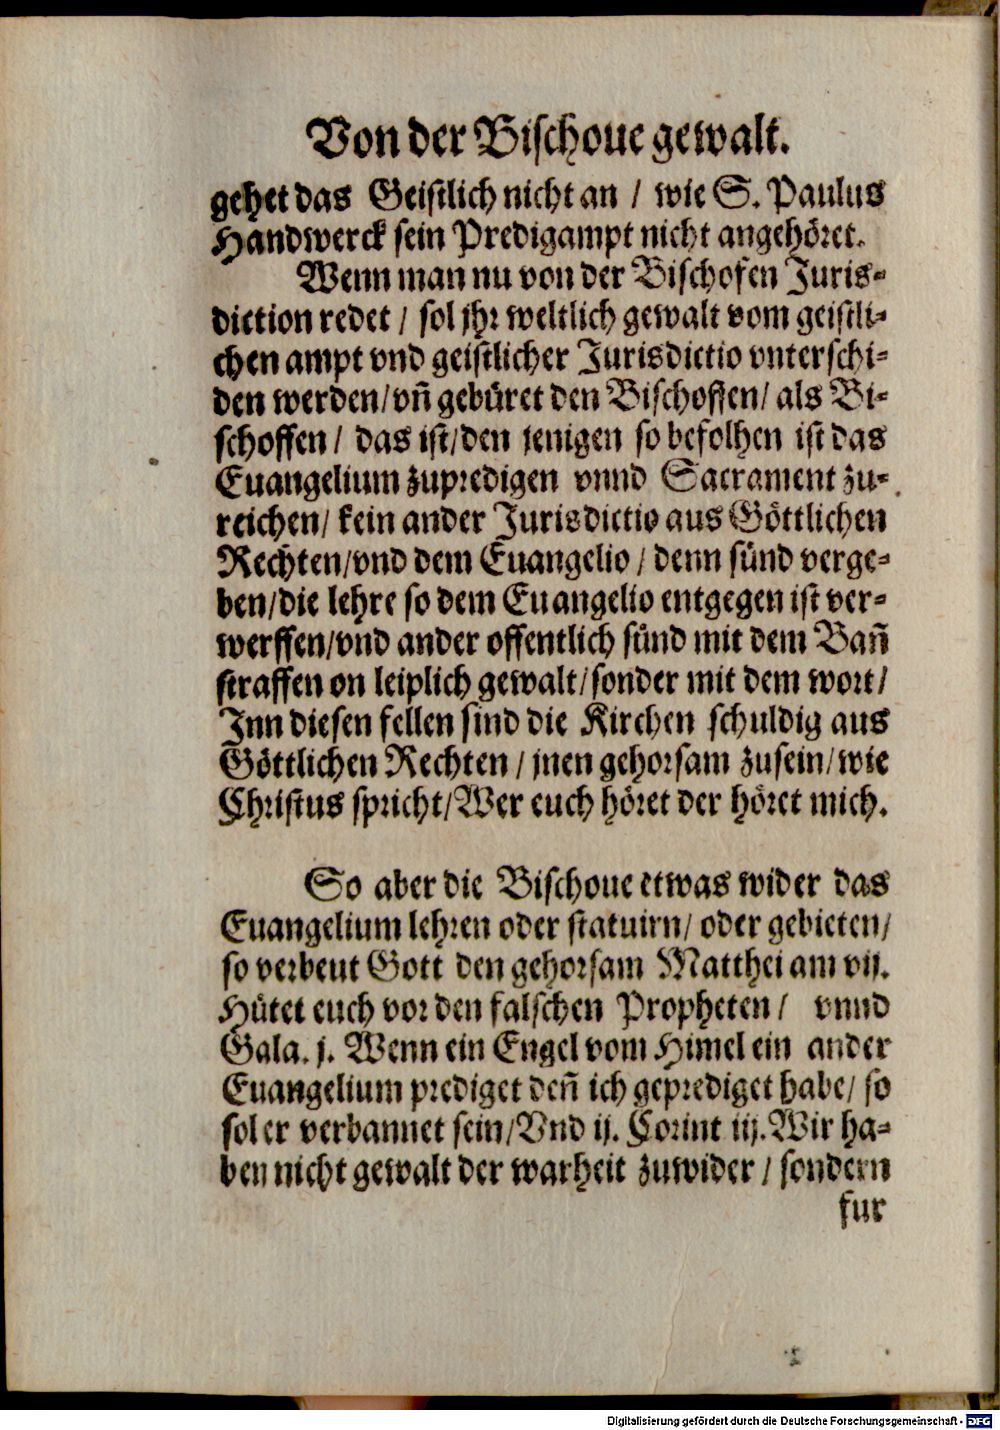 Von der Bischoue gewalt.
gehet das Geistlich nicht an / wie S. Paulus
Handwerck sein Predigampt nicht angehöret.
Wenn man nu von der Bischofen Juris-
diction redet / sol jhr weltlich gewalt vom geistli-
chen ampt vnd geistlicher Jurisdictio vnterschi-
den werden/vn̄ gebüret den Bischoffen/ als Bi-
schoffen / das ist/den jenigen so befolhen ist das
Euangelium zupredigen vnnd Sacrament zu-
reichen/ kein ander Jurisdictio aus Göttlichen
Rechten/vnd dem Euangelio / denn sünd verge-
ben/die lehre so dem Euangelio entgegen ist ver-
werffen/vnd ander offentlich sünd mit dem Ban̄
straffen on leiplich gewalt/sonder mit dem wort/
Inn diesen fellen sind die Kirchen schuldig aus
Göttlichen Rechten / jnen gehorsam zusein/wie
Christus spricht/Wer euch höret der höret mich.
So aber die Bischoue etwas wider das
Euangelium lehren oder statuirn/ oder gebieten/
so verbeut Gott den gehorsam Matthei am vij.
Hütet euch vor den falschen Propheten / vnnd
Gala. j. Wenn ein Engel vom Himel ein ander
Euangelium prediget den̄ ich geprediget habe/ so
sol er verbannet sein/Vnd ij. Corint iij. Wir ha-
ben nicht gewalt der warheit zuwider / sondern
fur
Digitalisierung gefördert durch die Deutsche Forschungsgemeinschaft - DFG